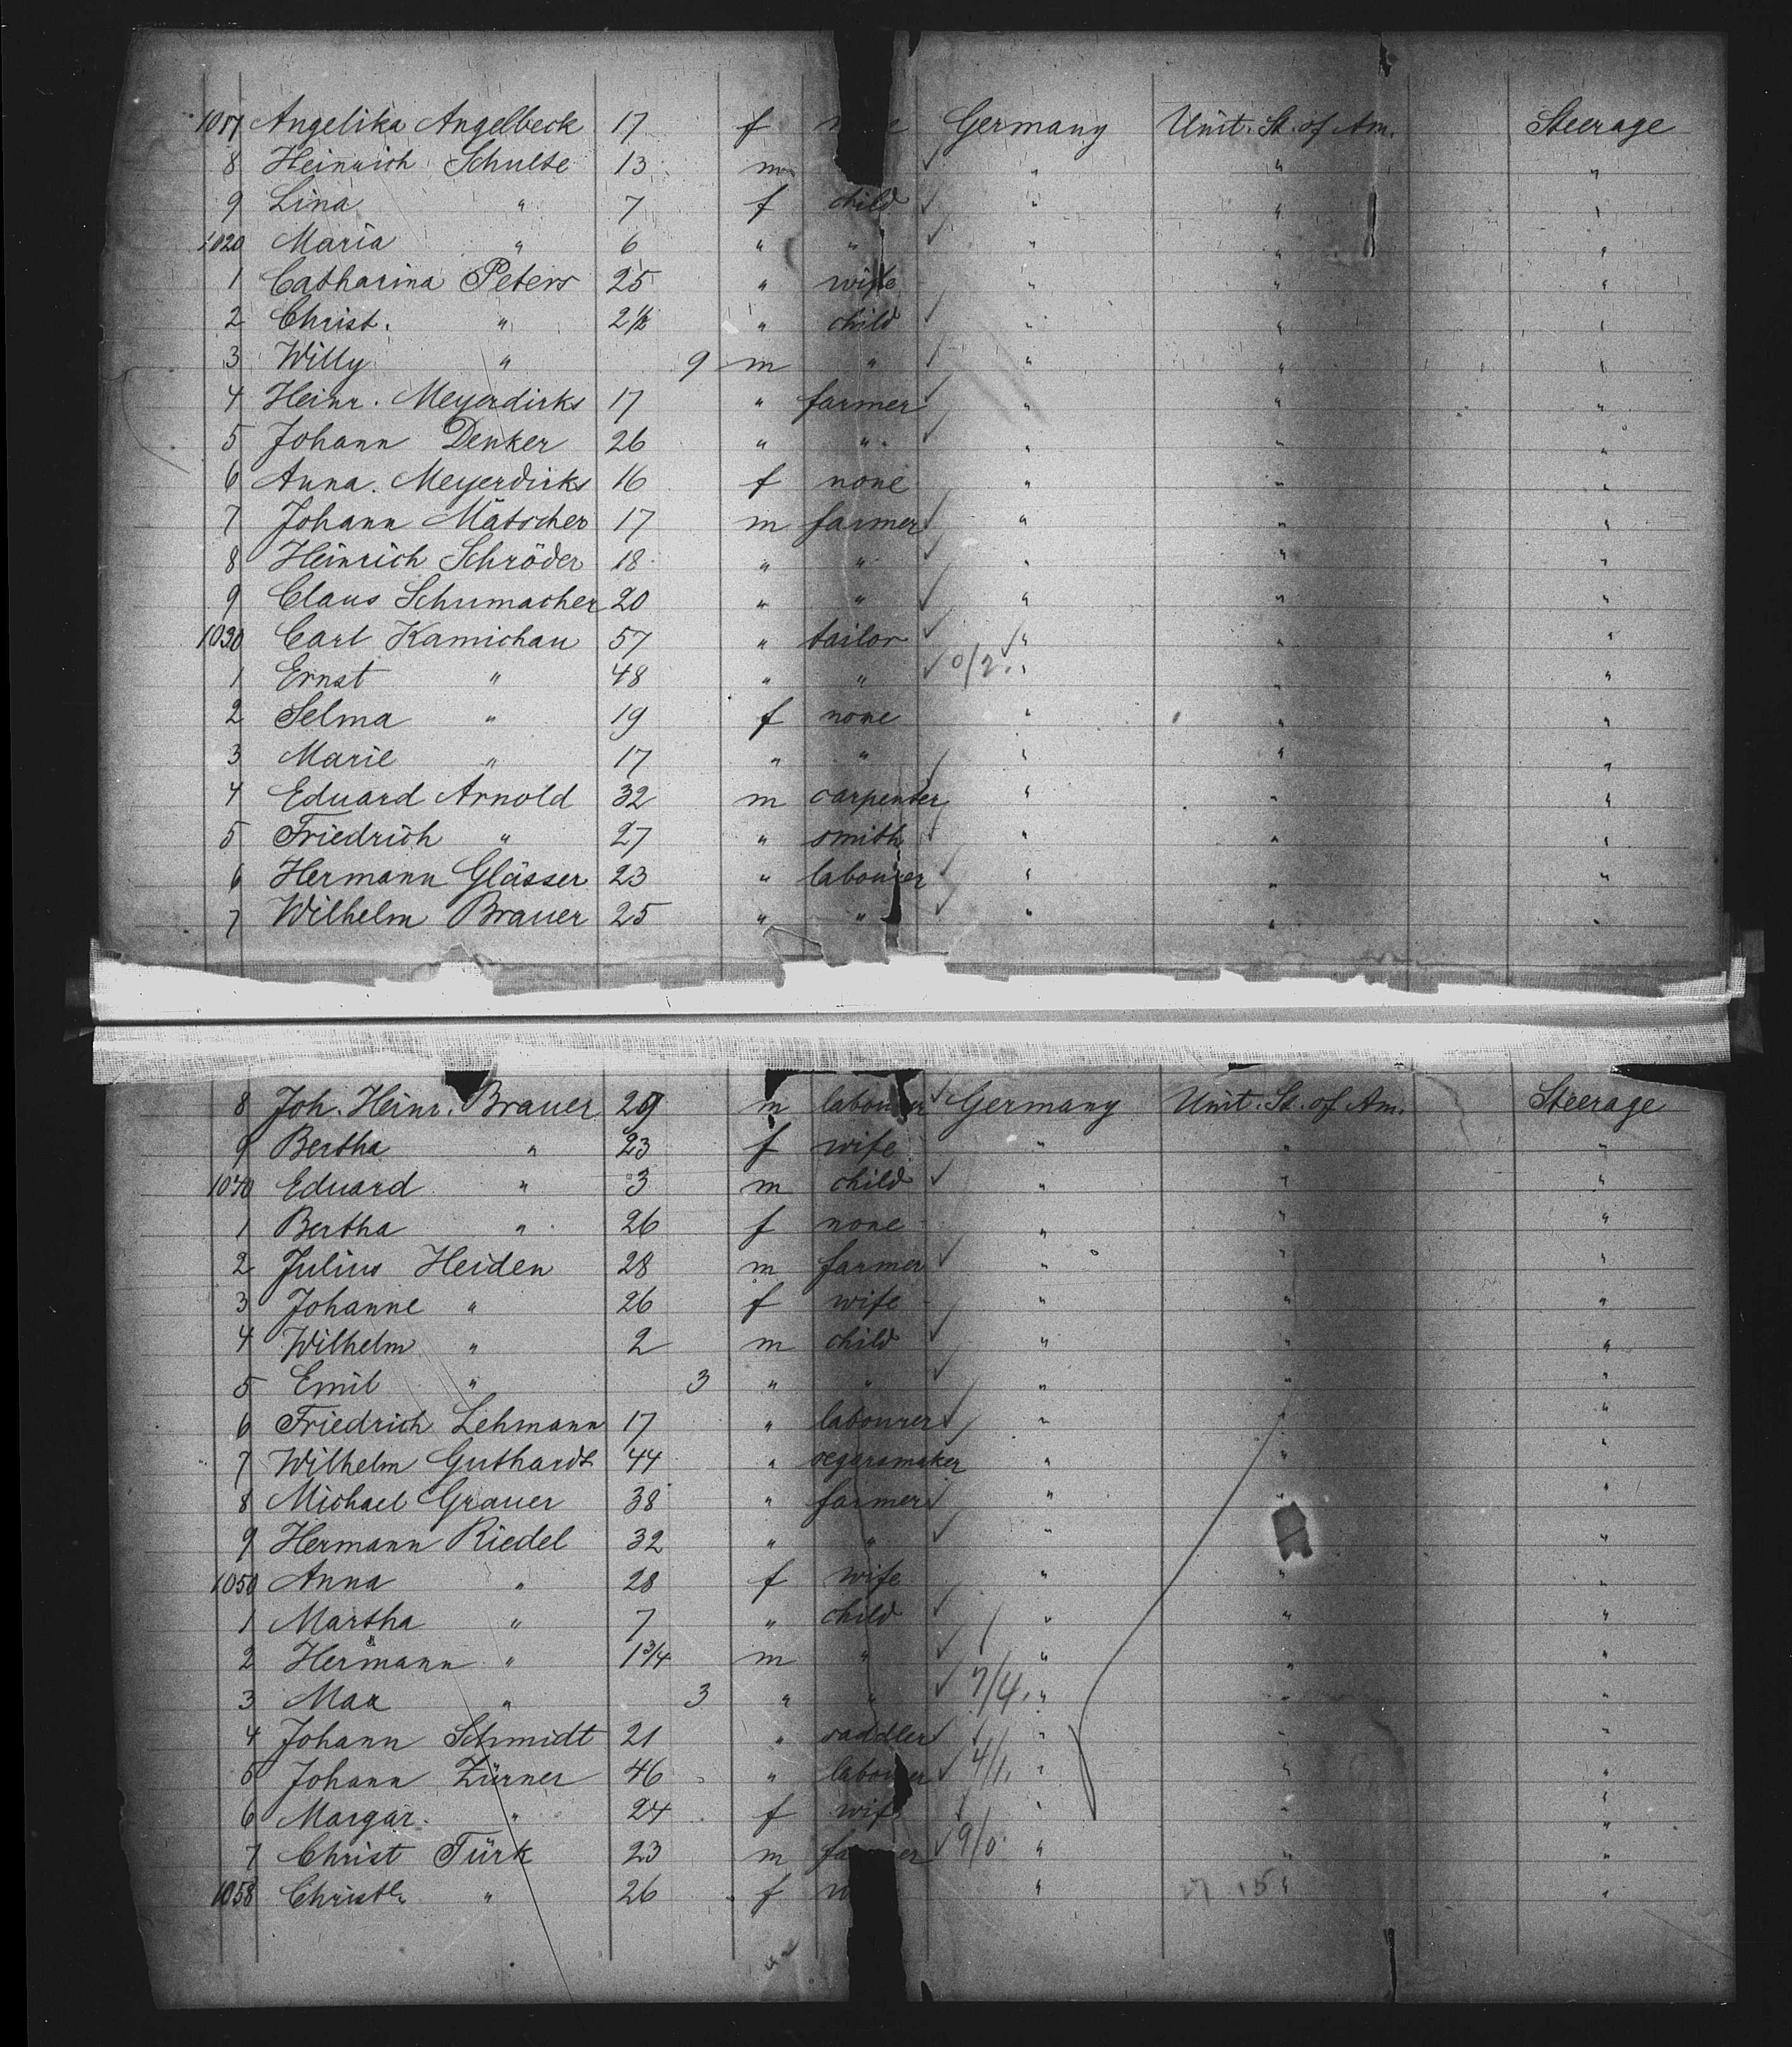 1017 Angelika Angelbeck 17 f Germany Unit. St. of Am. Steerage
8 Heinrich Schulte 13 m " " "
9 Lina " 7 f child " " "
1020 Maria " 6 " " " " "
1 Catharina Peters 25 " wife " " "
2 Christ. " 2 1/2 " child " " "
3 Willy " 9 m " " " "
4 Heinr. Meyerdirks 17 " farmer " " "
5 Johann Denker 26 " " " " "
6 Anna. Meyerdirks 16 f none " " "
7 Johann Mätscher 17 m farmer " " "
8 Heinrich Schröder 18 " " " " "
9 Claus Schumacher 20 " " " " "
1030 Carl Kamichau 57 " tailor " " "
1 Ernst " 48 " " 0/2. " " "
2 Selma " 19 f none " " "
3 Marie " 17 " " " " "
4 Eduard Arnold 32 m carpenter " " "
5 Friedrich " 27 " smith " " "
6 Hermann Glässer 23 " labourer " " "
7 Wilhelm Brauer 25 " " " " "
8 Joh. Heinr. Brauer 29 m labourer Germany Unit. St. of Am. Steerage
9 Bertha " 23 f wife " " "
1040 Eduard " 3 m child " " "
1 Bertha " 26 f none " " "
2 Julius Heiden 28 m farmer " " "
3 Johanne " 26 f wife " " "
4 Wilhelm " 2 m child " " "
5 Emil " 3 " " " " "
6 Friedrich Lehmann 17 " labourer " " "
7 Wilhelm Guthardt 44 " segarsmaker " " "
8 Michael Grauer 38 " farmer " " "
9 Hermann Riedel 32 " " " " "
1050 Anna " 28 f wife " " "
1 Martha " 7 " child " " "
2 Hermann " 1 3/4 m " " " "
3 Max " 3 " " 7/4. " " "
4 Johann Schmidt 21 " saddler " " "
5 Johann Zürner 46 " labourer 4/1. " " "
6 Margar. " 24 f wife " " "
7 Christ Türk 23 m farmer 9/0 " " "
1058 Christe. " 26 f " " "